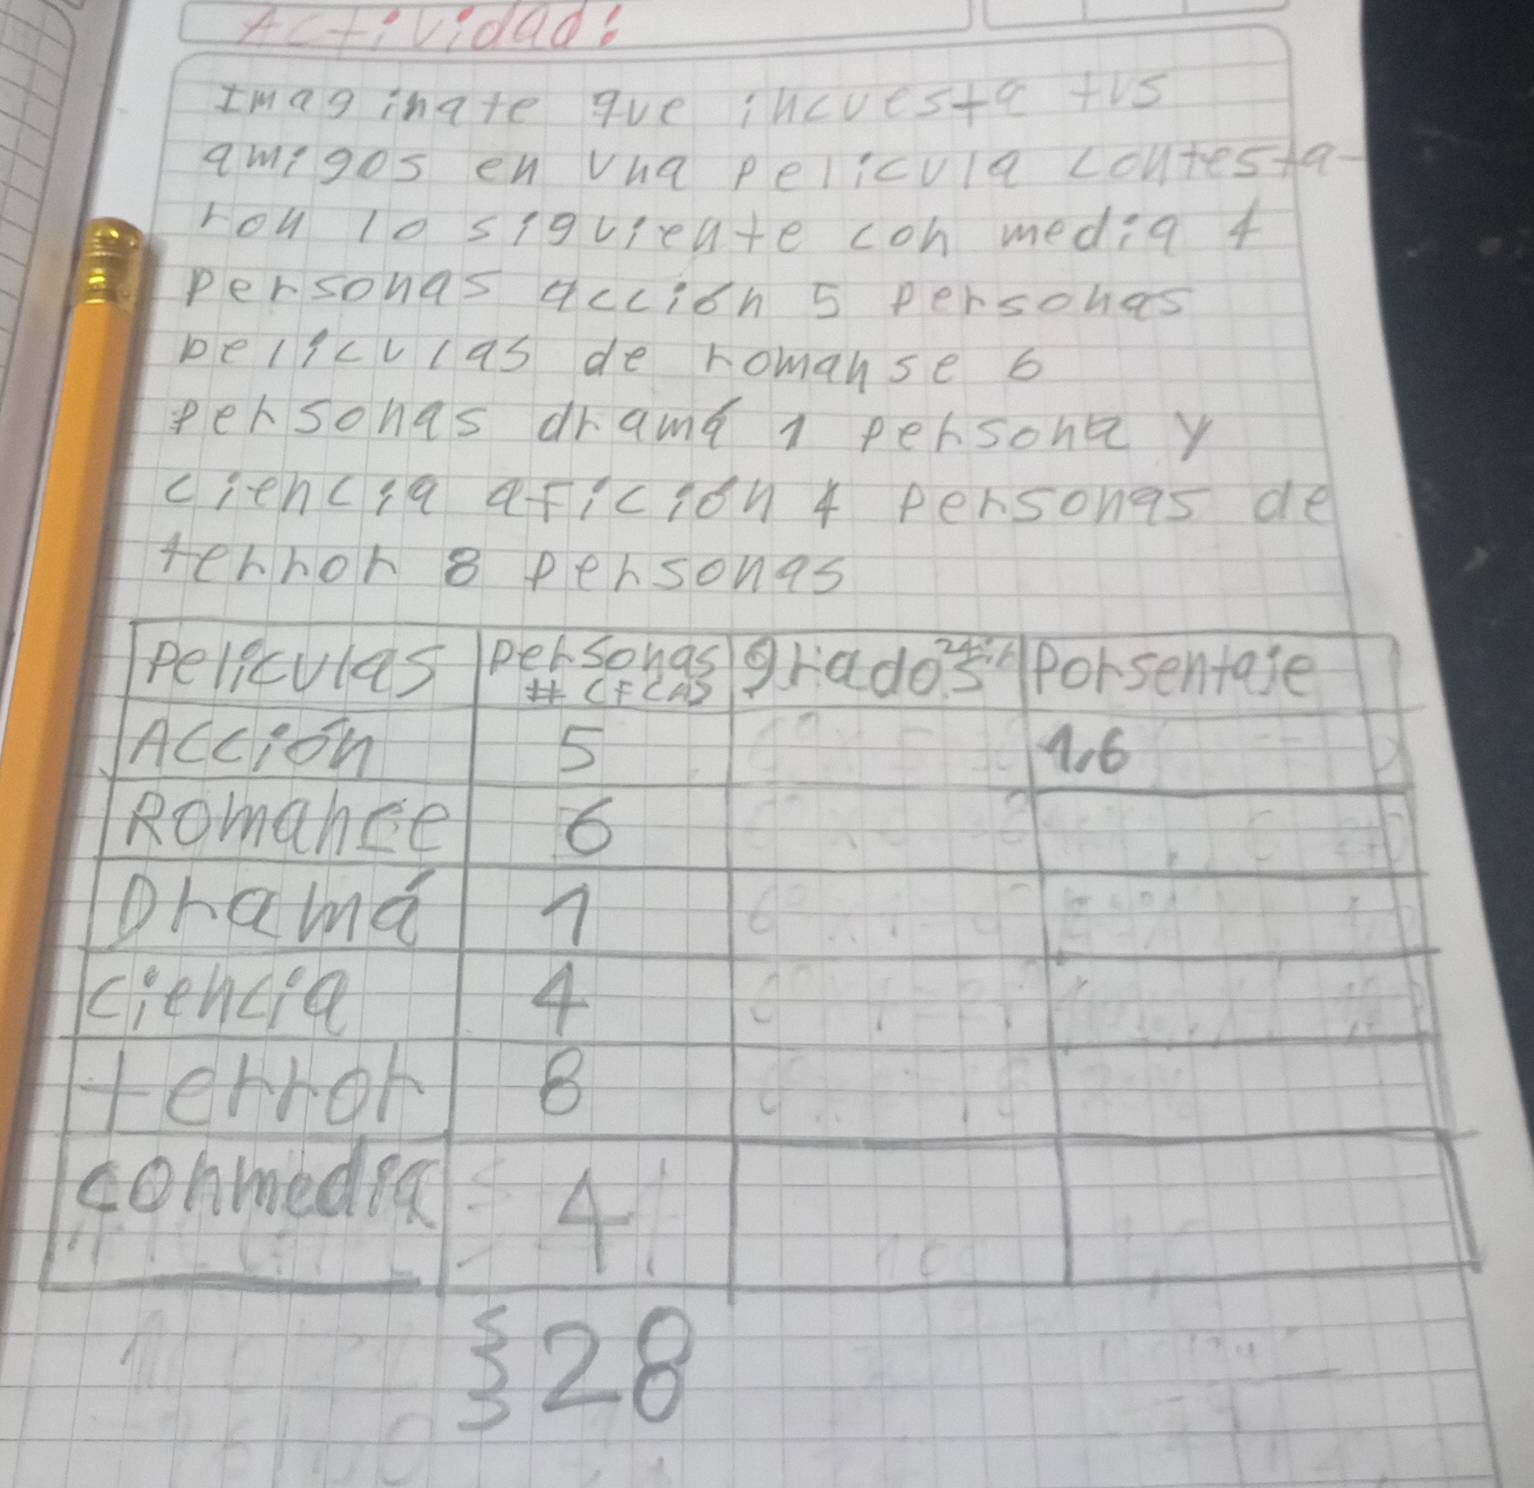 Actividad:
Imaginate que incuesta tus
amigos en una pelicula contesta-
ron lo siguiente con media 4
personas acción 5 personas
peliculas de romanse 6
personas dramá 1 persona y
ciencia afición 4 personas de
terror 8 personas
Peliculas personas grados Porsentaje
#
Acción 5 1.6
Romance 6
Dramá 1
ciencia 4
terror 8
conmedia 4
28